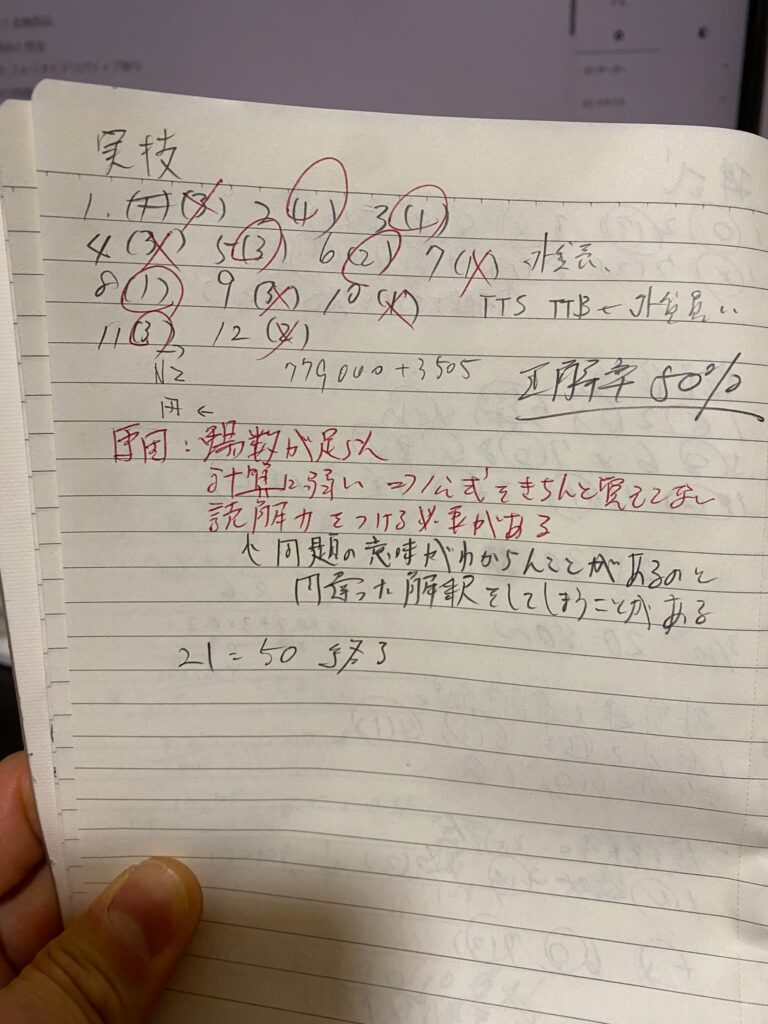 実技
1. (3) 2 (4) 3 (4)
4 (3) 5 (3) 6 (2) 7 (1) 外貨
8 (1) 9 (3) 10 (1) TTS TTB ← 外貨買い
11 (3) 12 (2)
NZ 779000+3505 正解率 50%
円 ←
原因: 場数が足らん
計算に弱い ⇒ 公式をきちんと覚えてない
読解力をつける必要がある
問題の意味がわからんことがあるのと
間違った解釈をしてしまうことがある
21=50 終了